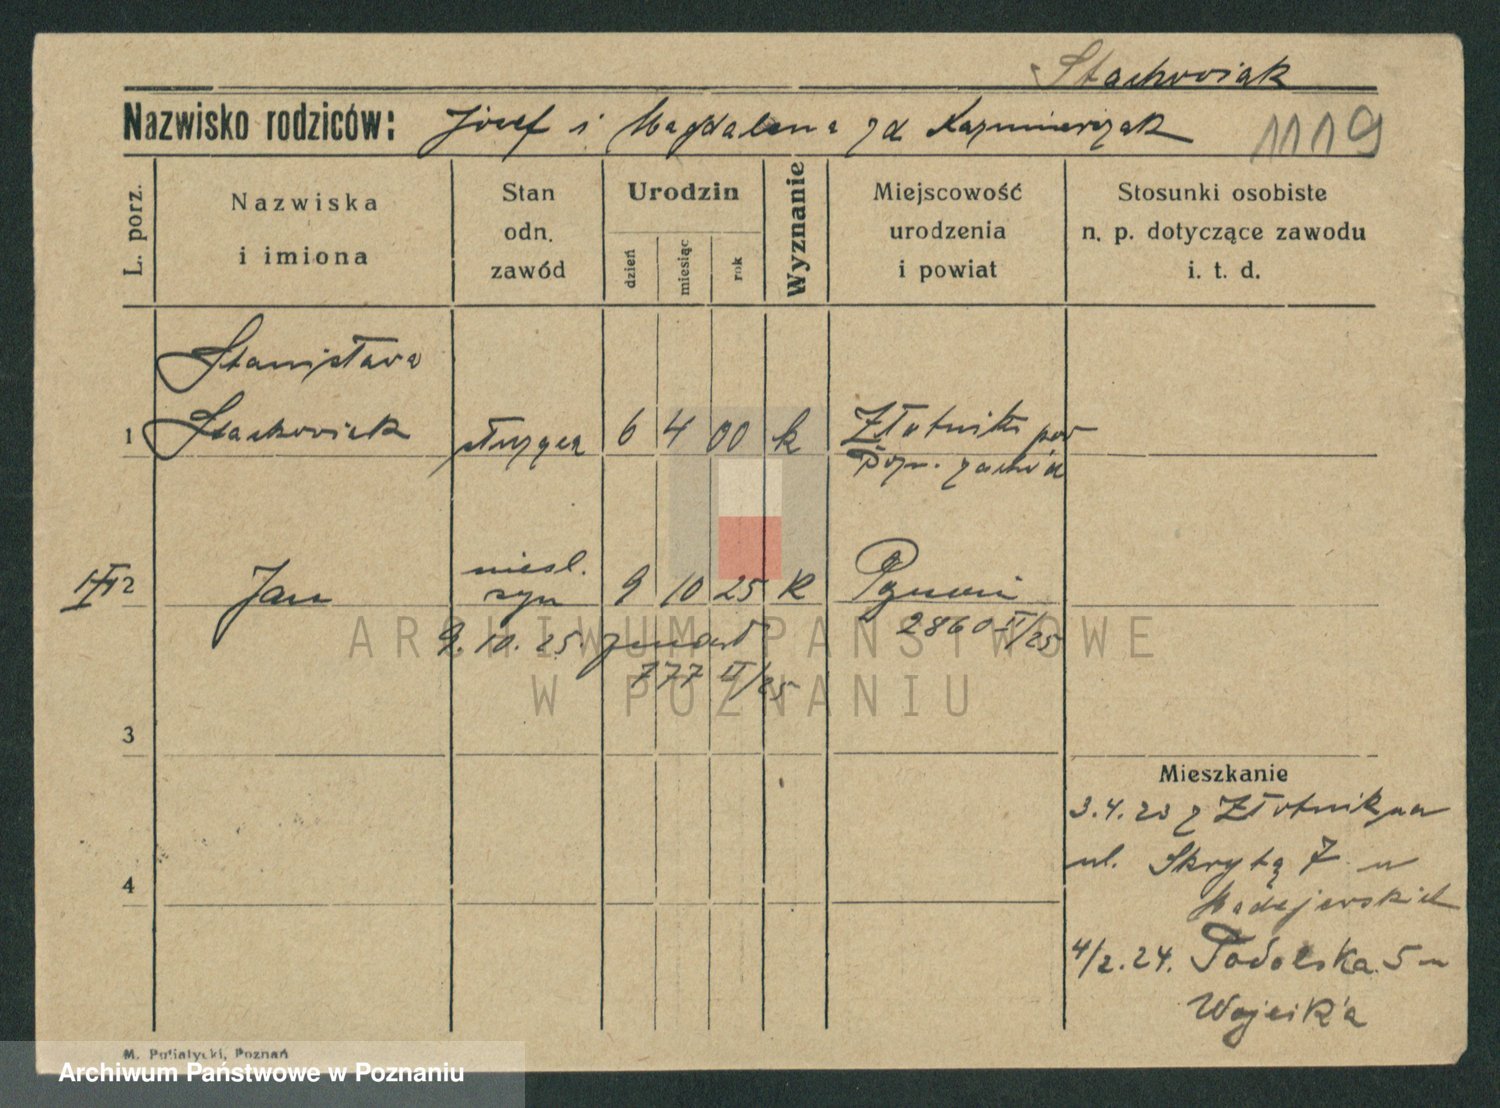 Stachowiak
Nazwisko rodziców: Józef i Magdalena zd Kaźmierczak
1119
L. porz.
Nazwiska
i imiona
Stan
odn.
zawód
Urodzin
dzień
miesiąc
rok
Wyznanie
Miejscowość
urodzenia
i powiat
Stosunki osobiste
n. p. dotyczące zawodu
i. t. d.
Stanisława
1 Stachowiak służąca 6 4 00 k Złotniki pow
Pozn. zachód
niesl.
2 Jan syn 9 10 25 k Poznań
2860 II/25
9. 10. 25. zmarł
777 II/25
3
Mieszkanie
3.4.23 z Złotnik na
ul. Skrytą 7 u
Madejewskich
4
4/2.24. Podolska 5 u
Wojcika
M. Putiatycki, Poznań
ARCHIWUM PAŃSTWOWE
W POZNANIU
Archiwum Państwowe w Poznaniu